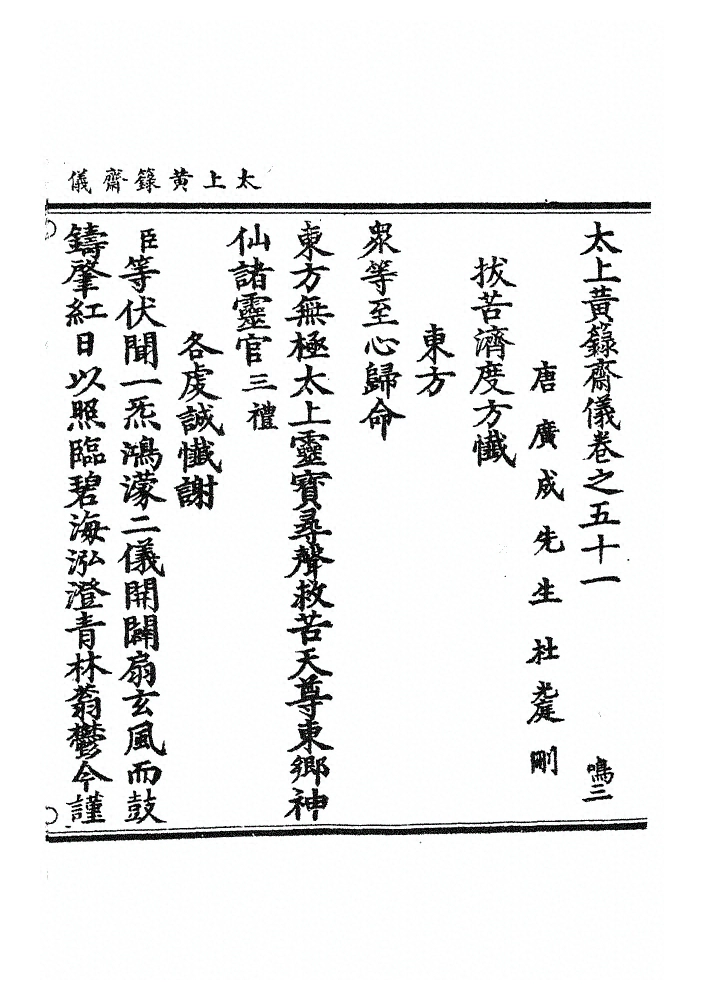 太上黃籙齋儀
太上黃籙齋儀卷之五十一　鳴三
唐廣成先生杜光庭刪
拔苦濟度方懺
東方
衆等至心歸命
東方無極太上靈寶尋聲救苦天尊東鄉神
仙諸靈官三禮
各虔誠懺謝
臣等伏聞一炁鴻濛二儀開闢扇玄風而鼓
鑄肇紅日以照臨碧海泓澄青林蓊鬱今謹